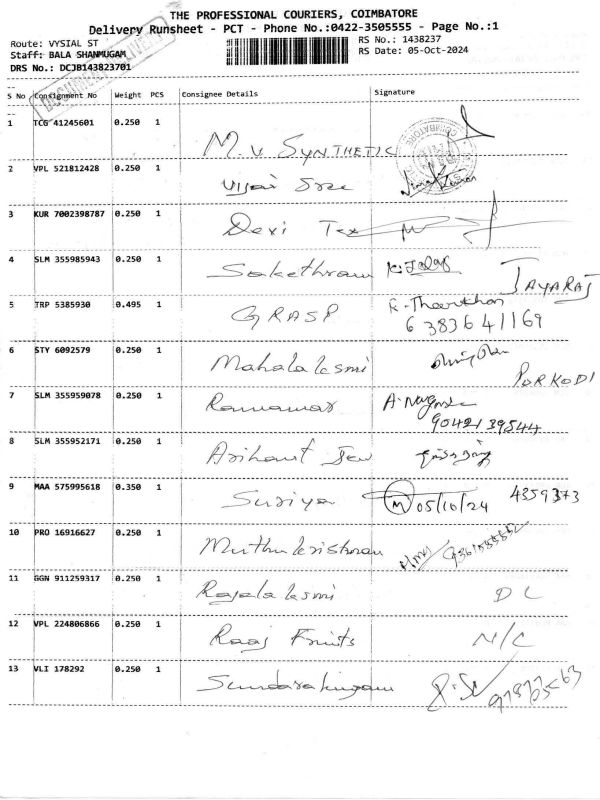 THE PROFESSIONAL COURIERS, COIMBATORE
Delivery Runsheet - PCT - Phone No.:0422-3505555 - Page No.:1
Route: VYSIAL ST
RS No.: 1438237
Staff: BALA SHANMUGAM
RS Date: 05-Oct-2024
DRS No.: DCJB143823701
S No Consignment No Weight PCS Consignee Details Signature
1 TCG 41245601 0.250 1 M. V. SYNTHETIC
2 VPL 521812428 0.250 1 Vijai Sree
3 KUR 7002398787 0.250 1 Devi Tex
4 SLM 355985943 0.250 1 Sakethram JAYARAJ
5 TRP 5385930 0.495 1 GRASP R. Tharkhan
6383641169
6 STY 6092579 0.250 1 Mahalalesmi PORKODI
7 SLM 355959078 0.250 1 Ramamar
9042139544
8 SLM 355952171 0.250 1 Arihant Jew
9 MAA 575995618 0.350 1 Suriya 05/10/24 4359373
10 PRO 16916627 0.250 1 Muthukrishnan
11 GGN 911259317 0.250 1 Rajalalesmi DL
12 VPL 224806866 0.250 1 Raaj Fruits N/C
13 VLI 178292 0.250 1 Sundaralingam